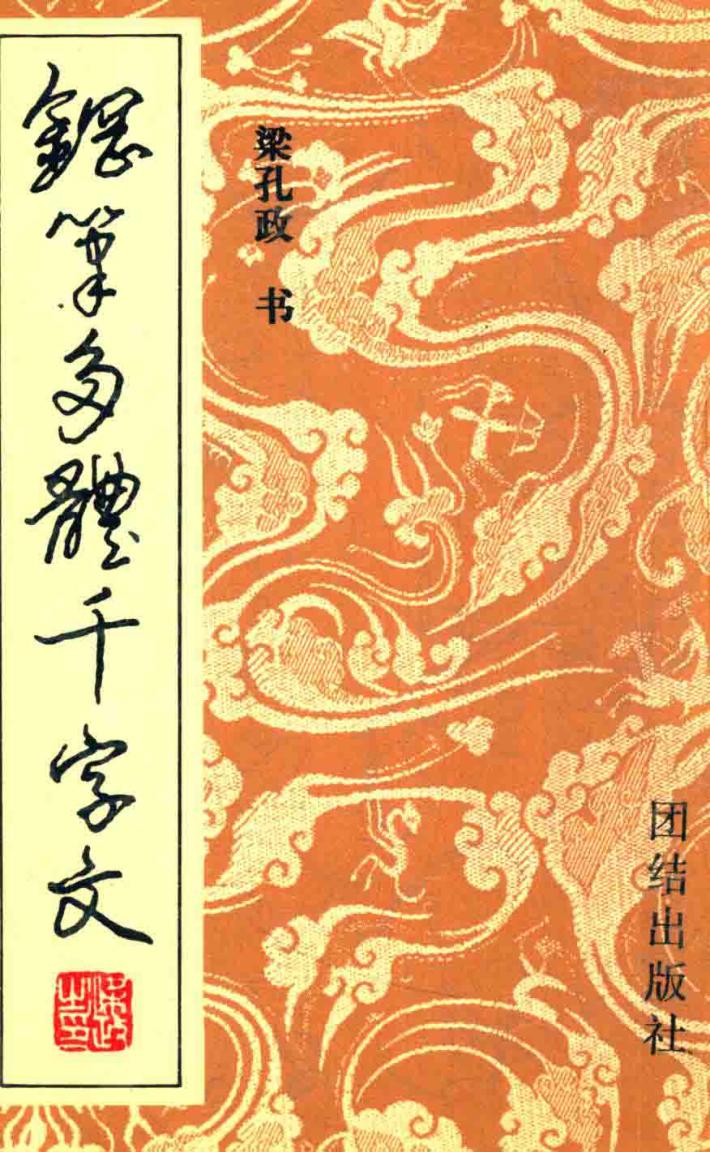 鋼筆多體千字文
梁孔政 书
团结出版社